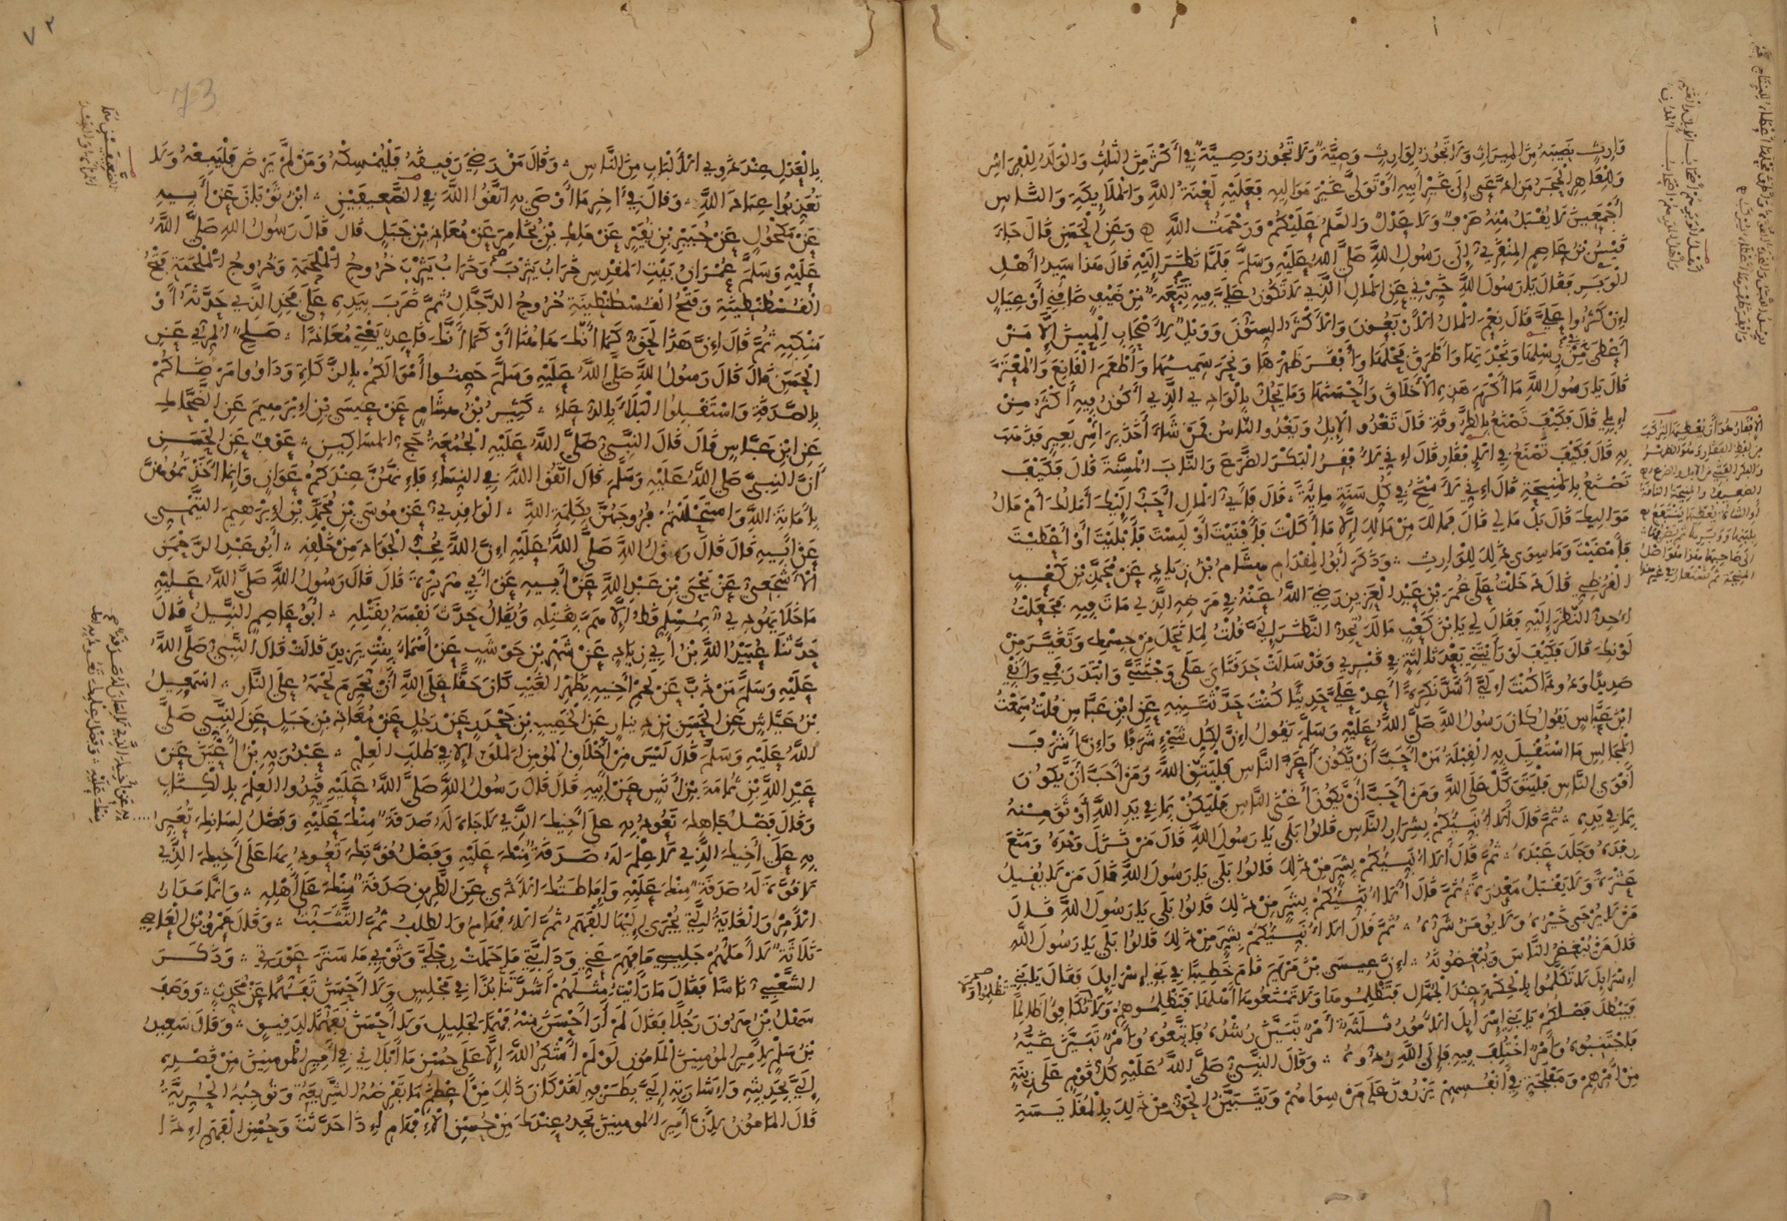 وارث نصيبه من الميراث ولا تجوز لوارث وصية ولا تجوز وصية في أكثر من الثلث والولد للفراش
وللعاهر الحجر من ادعى إلى غير أبيه أو تولى غير مواليه فعليه لعنة الله والملائكة والناس
أجمعين لا يقبل منه صرف ولا عدل والسلم عليكم ورحمت الله وعن الحسن قال جاء
قيس بن عاصم المنقري إلى رسول الله صلى الله عليه وسلم فلما نظر إليه قال هذا سيد أهل
الوبر فقال يا رسول الله خبرني عن المال الذي لا تكون علي فيه تبعة من ضيف ضافني أو عيال
إن كثروا علي قال نعم المال الأربعون والأكثر الستون وويل لأصحاب المئين إلا من
أعطى من رسلها ونجدتها وأطرق فحلها وأفقر ظهرها ونحر سمينها وأطعم القانع والمعتر
قال يا رسول الله ما أكرم هذه الأخلاق وأحسنها وما يحل بالوادي الذي أكون فيه أكثر من
إبلي قال فكيف تصنع بالطروقة قال تغدو الإبل ويغدو الناس فمن شاء أخذ برأس بعير فذهب
به قال فكيف تصنع في الإفقار قال إني لا أفقر البكر الضرع والناب المسنة قال فكيف
تصنع بالمنيحة قال إني لأمنح في كل سنة مائة قال فأي المال أحب إليك أمالك أم مال
مواليك قال بل مالي قال فمالك من مالك إلا ما أكلت فأفنيت أو لبست فأبليت أو أعطيت
فأمضيت وما سوى ذلك للوارث وذكر أبو المقدام هشام بن زياد عن محمد بن كعب
القرظي قال دخلت على عمر بن عبد العزيز رضي الله عنه في مرضه الذي مات فيه فجعلت
أحد النظر إليه فقال لي يا بن كعب مالك تحد النظر إلي قلت لما نحل من جسمك وتغير من
لونك قال فكيف لو رأيتني بعد ثالثة في قبري وقد سالت حدقتاي على وجنتي وابتدر فمي وأنفي
صديدا ودودا كنت لي أشد نكرة أعد علي حديثا كنت حدثتنيه عن ابن عباس قلت سمعت
ابن عباس يقول كان رسول الله صلى الله عليه وسلم يقول إن لكل شيء شرفا وإن أشرف
المجالس ما استقبل به القبلة من أحب أن يكون أعز الناس فليتق الله ومن أحب أن يكون
أقوى الناس فليتوكل على الله ومن أحب أن يكون أغنى الناس فليكن بما في يد الله أوثق منه
بما في يده ثم قال ألا أنبئكم بشرار الناس قالوا بلى يا رسول الله قال من نزل وحده ومنع
رفده وجلد عبده ثم قال ألا أنبئكم بشر من ذلك قالوا بلى يا رسول الله قال من لا يقيل
عثرة ولا يقبل معذرة ثم قال ألا أنبئكم بشر من ذلك قالوا بلى يا رسول الله قال
من لا يرجى خيره ولا يؤمن شره ثم قال ألا أنبئكم بشر من ذلك قالوا بلى يا رسول الله
قال من يبغض الناس ويبغضونه إن عيسى بن مريم قام خطيبا في بني إسرائيل فقال يا بني
إسرائيل لا تكلموا بالحكمة عند الجهال فتظلموها ولا تمنعوها أهلها فتظلموهم ولا تظلموا ولا تكافوا ظالما
فيبطل فضلكم يا بني إسرائيل الأمور ثلاثة أمر تبين رشده فاتبعوه وأمر تبين غيه
فاجتنبوه وأمر اختلف فيه فإلى الله ردوه وقال النبي صلى الله عليه كل قوم على زينة
من أمرهم ومفلحة في أنفسهم يزرون على من سواهم ويتبين الحق من ذلك بالمقايسة
٧٢
73
بالعدل عند ذوي الألباب من الناس وقال من رضي رفيقه فليمسكه ومن لم يرض فليبعه ولا
تعذبوا عباد الله وقال في آخر ما أوصى به اتقوا الله في الضعيفين ابن ثوبان عن أبيه
عن مكحول عن جبير بن نفير عن مالك بن يخامر عن معاذ بن جبل قال قال رسول الله صلى الله
عليه وسلم عمران بيت المقدس خراب يثرب وخراب يثرب خروج الملحمة وخروج الملحمة فتح
القسطنطينية وفتح القسطنطينية خروج الدجال ثم ضرب بيده على فخذ الذي حدثه أو
منكبه ثم قال إن هذا لحق كما أنك هاهنا أو كما أنك قاعد يعني معاذا صالح المري عن
الحسن قال قال رسول الله صلى الله عليه وسلم حصنوا أموالكم بالزكاة وداووا مرضاكم
بالصدقة واستقبلوا البلاء بالدعاء كثير بن هشام عن عيسى بن إبرهيم عن الضحاك
عن ابن عباس قال قال النبي صلى الله عليه الجمعة حج المساكين عوف عن الحسن
أن النبي صلى الله عليه وسلم قال اتقوا الله في النساء فإنهن عندكم عوان وإنما أخذتموهن
بأمانة الله واستحللتم فروجهن بكلمة الله الواقدي عن موسى بن محمد بن إبرهيم التيمي
عن أبيه قال قال رسول الله صلى الله عليه إن الله يحب الجواد من خلقه أبو عبد الرحمن
الأشجعي عن يحيى بن عبد الله عن أبيه عن أبي هريرة قال قال رسول الله صلى الله عليه
ما خلا يهودي بمسلم قط إلا هم بقتله ويقال حدث نفسه بقتله أبو عاصم النبيل قال
حدثنا عبيد الله بن أبي زياد عن شهر بن حوشب عن أسماء بنت يزيد قالت قال النبي صلى الله
عليه وسلم من ذب عن لحم أخيه بظهر الغيب كان حقا على الله أن يحرم لحمه على النار اسمعيل
بن عياش عن الحسن بن دينار عن الخصيب بن جحدر عن رجل عن معاذ بن جبل عن النبي صلى
الله عليه وسلم قال ليس من أخلاق المؤمن الملق إلا في طلب العلم عبد ربه بن أعين عن
عبد الله بن ثمامة بن أنس عن أبيه قال قال رسول الله صلى الله عليه قيدوا العلم بالكتاب
وقال فضل جاهك تعود به على أخيك الذي لا جاه له صدقة منك عليه وفضل لسانك تعبر
به على أخيك الذي لا علم له صدقة منك عليه وفضل قوتك تعود بها على أخيك الذي
لا قوة له صدقة منك عليه وإماطتك الأذى عن الطريق صدقة منك على أهله وإنما مدار
الأمر والغاية التي يجرى إليها الفهم ثم الإفهام والطلب ثم التثبت وقال عمرو بن العاصي
ثلاثة لا أملهم جليسي ما فهم عني ودابتي ما حملت رجلي وثوبي ما ستر عورتي وذكر
الشعبي ناسا فقال ما رأيت مثلهم أشد تنابذا في مجلس ولا أحسن تفهما عن محدث ووصف
سهل بن هرون رجلا فقال لم أر أحسن منه فهما لجليل ولا أحسن تفهما لدقيق وقال سعيد
بن سلم لأمير المؤمنين المأمون لو لم أشكر الله إلا على حسن ما أبلاني في أمير المؤمنين من قصده
إلي بحديثه وإشارته إلي بطرفه لقد كان ذلك من أعظم ما تفرضه الشريعة وتوجبه الحرية
قال المأمون لأن أمير المؤمنين يجد عندك من حسن الإفهام إذا حدثت وحسن الفهم إذا